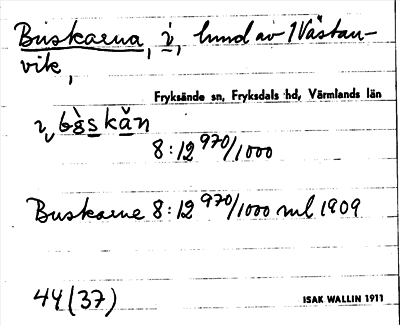 Buskarna, i, lund av 1 Västan-
vik,
Fryksände sn, Fryksdals hd, Värmlands län
8:12 970/1000
Buskarne 8:12 970/1000 ml 1909
44(37)
ISAK WALLIN 1911